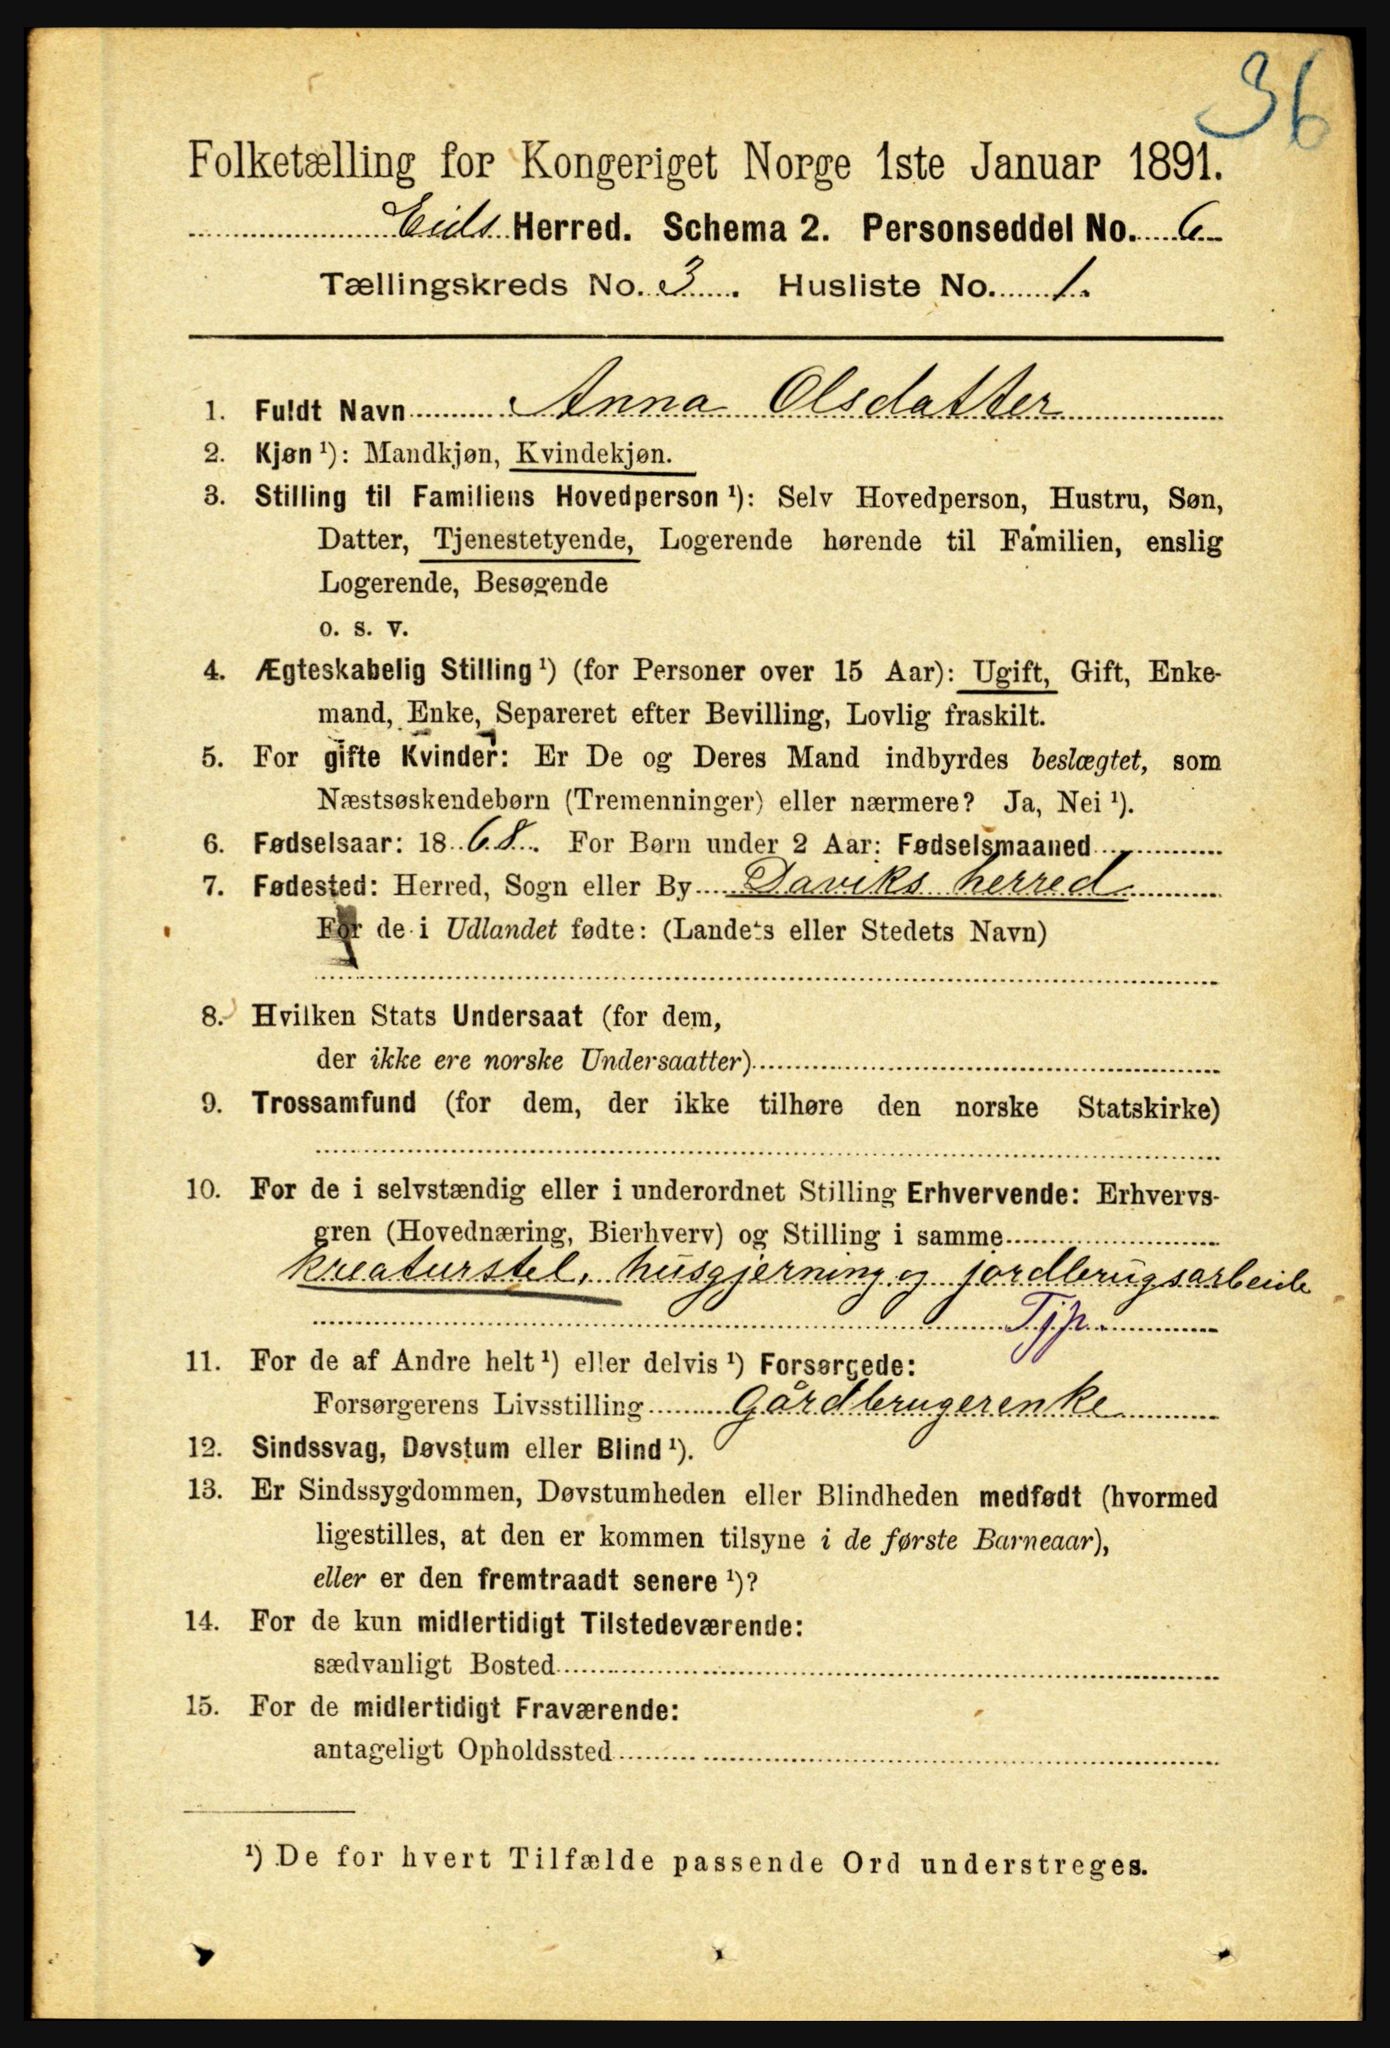 36
Folketælling for Kongeriget Norge 1ste Januar 1891.
Eids Herred. Schema 2. Personseddel No. 6
Tællingskreds No. 3. Husliste No. 1.
1. Fuldt Navn Anna Olsdatter
2. Kjøn ¹): Mandkjøn, Kvindekjøn.
3. Stilling til Familiens Hovedperson ¹): Selv Hovedperson, Hustru, Søn,
Datter, Tjenestetyende, Logerende hørende til Familien, enslig
Logerende, Besøgende
o. s. v.
4. Ægteskabelig Stilling ¹) (for Personer over 15 Aar): Ugift, Gift, Enke-
mand, Enke, Separeret efter Bevilling, Lovlig fraskilt.
5. For gifte Kvinder: Er De og Deres Mand indbyrdes beslægtet, som
Næstsøskendebørn (Tremenninger) eller nærmere? Ja, Nei ¹).
6. Fødselsaar: 1868. For Børn under 2 Aar: Fødselsmaaned
7. Fødested: Herred, Sogn eller By Daviks herred
For de i Udlandet fødte: (Landets eller Stedets Navn)
8. Hvilken Stats Undersaat (for dem,
der ikke ere norske Undersaatter)
9. Trossamfund (for dem, der ikke tilhøre den norske Statskirke)
10. For de i selvstændig eller i underordnet Stilling Erhvervende: Erhvervs-
gren (Hovednæring, Bierhverv) og Stilling i samme
kreaturstel, husgjerning og jordbrugsarbeide
Tjp.
11. For de af Andre helt ¹) eller delvis ¹) Forsørgede:
Forsørgerens Livsstilling Gårdbrugerenke
12. Sindssvag, Døvstum eller Blind ¹).
13. Er Sindssygdommen, Døvstumheden eller Blindheden medfødt (hvormed
ligestilles, at den er kommen tilsyne i de første Barneaar),
eller er den fremtraadt senere ¹)?
14. For de kun midlertidigt Tilstedeværende:
sædvanligt Bosted
15. For de midlertidigt Fraværende:
antageligt Opholdssted
¹) De for hvert Tilfælde passende Ord understreges.